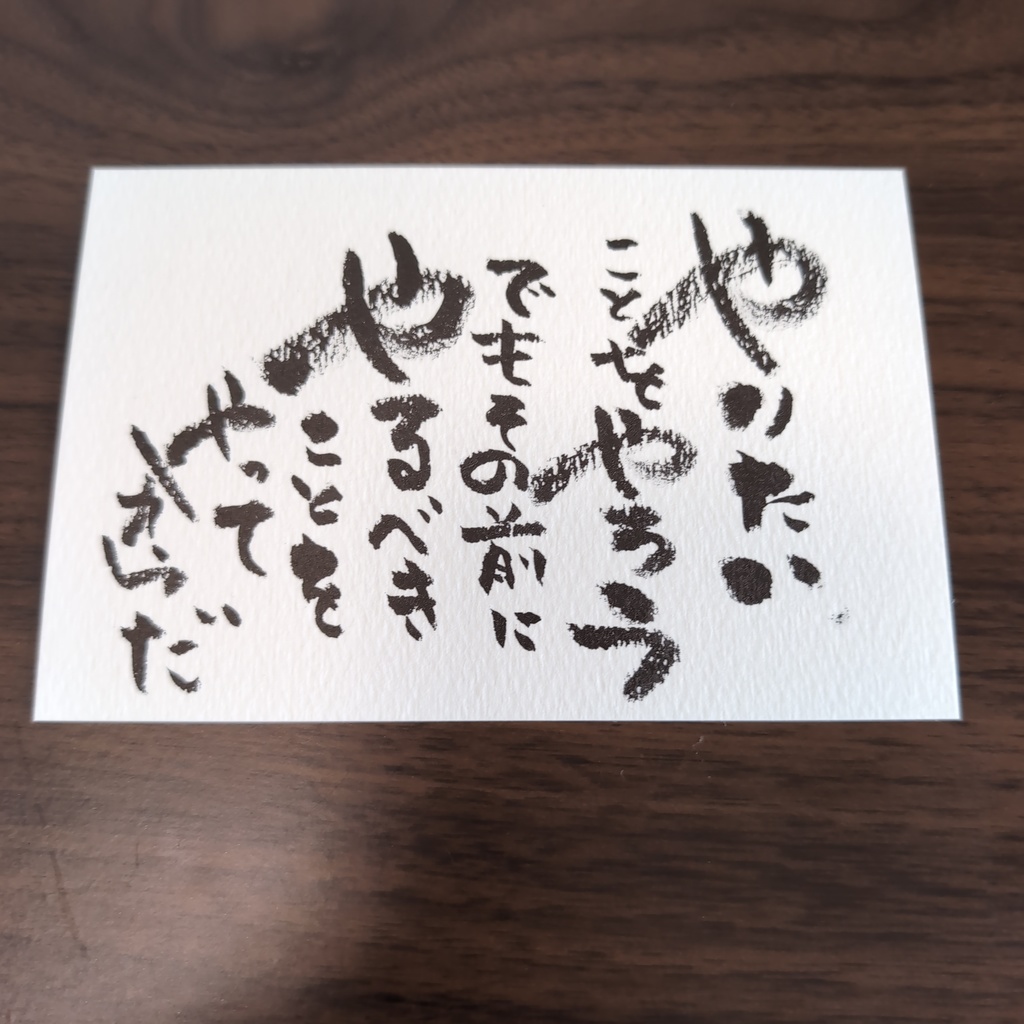 やりたい
ことをやろう
でもその前に
やるべき
ことを
やって
からだ